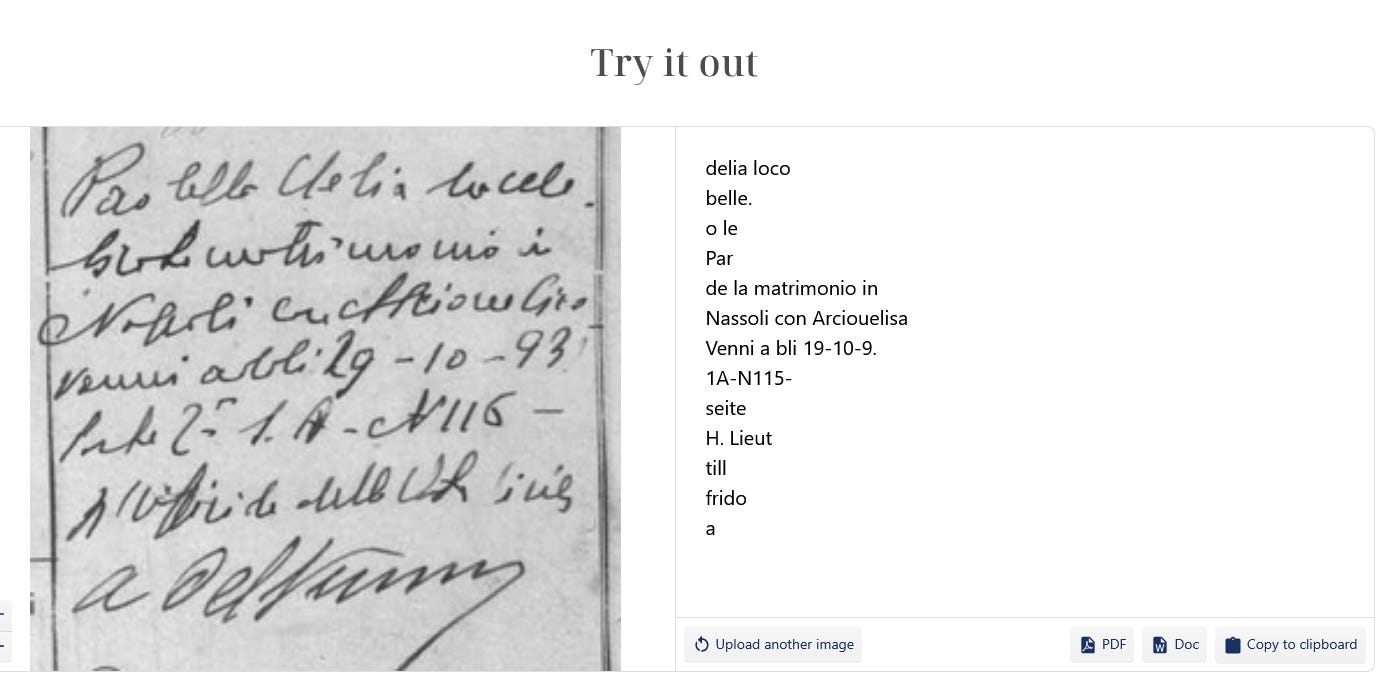 Try it out
Paolella Clelia ha cele-
brato matrimonio i
Napoli con
venni addi 29-10-93
Parte 2ª S. A - N 116 -
L'Uffici dello Stato Civile
delia loco
belle.
o le
Par
de la matrimonio in
Nassoli con Arciouelisa
Venni a bli 19-10-9.
1A-N115-
seite
H. Lieut
till
frido
a
Upload another image
PDF
Doc
Copy to clipboard